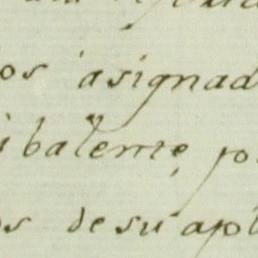 os asignad
ibalente, po
os desu apl